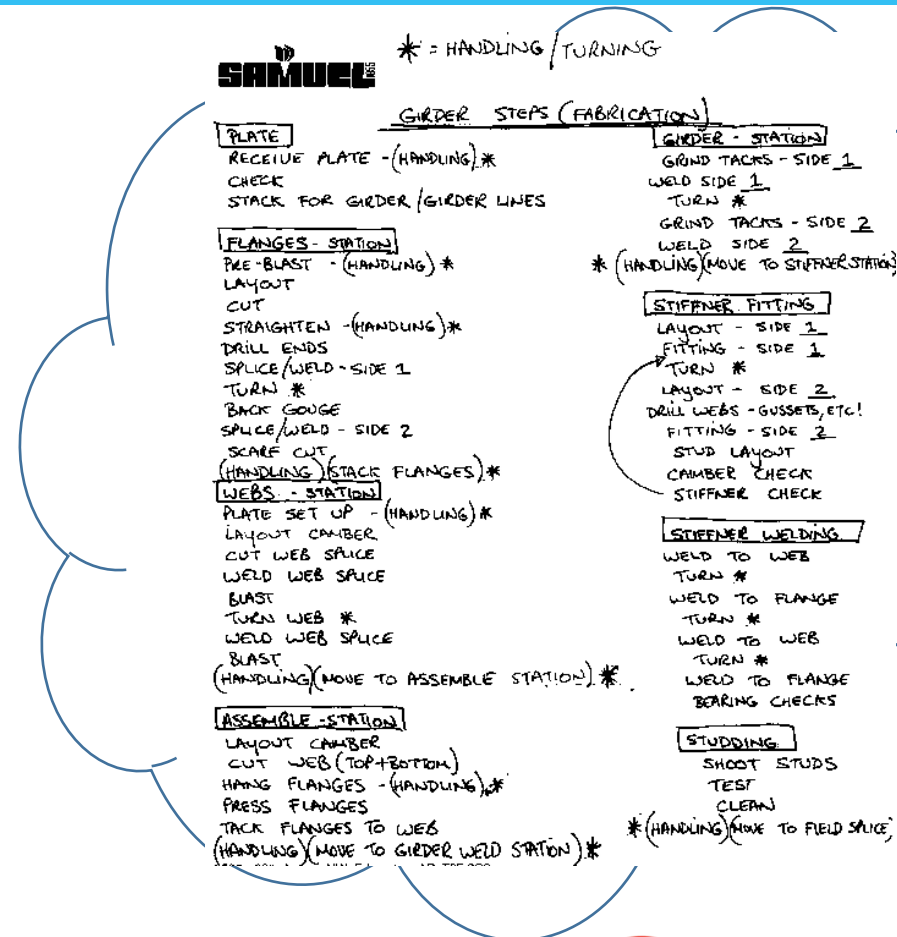 * = HANDLING / TURNING
SAMUEL
GIRDER STEPS (FABRICATION)
PLATE
RECEIVE PLATE - (HANDLING) *
CHECK
STACK FOR GIRDER / GIRDER LINES
FLANGES - STATION
PRE-BLAST - (HANDLING) *
LAYOUT
CUT
STRAIGHTEN - (HANDLING) *
DRILL ENDS
SPLICE/WELD - SIDE 1
TURN *
BACK GOUGE
SPLICE/WELD - SIDE 2
SCARF CUT
(HANDLING) (STACK FLANGES) *
WEBS - STATION
PLATE SET UP - (HANDLING) *
LAYOUT CAMBER
CUT WEB SPLICE
WELD WEB SPLICE
BLAST
TURN WEB *
WELD WEB SPLICE
BLAST
(HANDLING) (MOVE TO ASSEMBLE STATION) *
ASSEMBLE - STATION
LAYOUT CAMBER
CUT WEB (TOP + BOTTOM)
HANG FLANGES - (HANDLING) *
PRESS FLANGES
TACK FLANGES TO WEB
(HANDLING) (MOVE TO GIRDER WELD STATION) *
GIRDER - STATION
GRIND TACKS - SIDE 1
WELD SIDE 1
TURN *
GRIND TACKS - SIDE 2
WELD SIDE 2
* (HANDLING) (MOVE TO STIFFNER STATION)
STIFFNER FITTING
LAYOUT - SIDE 1
FITTING - SIDE 1
TURN *
LAYOUT - SIDE 2
DRILL WEBS - GUSSETS, ETC!
FITTING - SIDE 2
STUD LAYOUT
CAMBER CHECK
STIFFNER CHECK
STIFFNER WELDING
WELD TO WEB
TURN *
WELD TO FLANGE
TURN *
WELD TO WEB
TURN *
WELD TO FLANGE
BEARING CHECKS
STUDDING
SHOOT STUDS
TEST
CLEAN
* (HANDLING) (MOVE TO FIELD SPLICE)